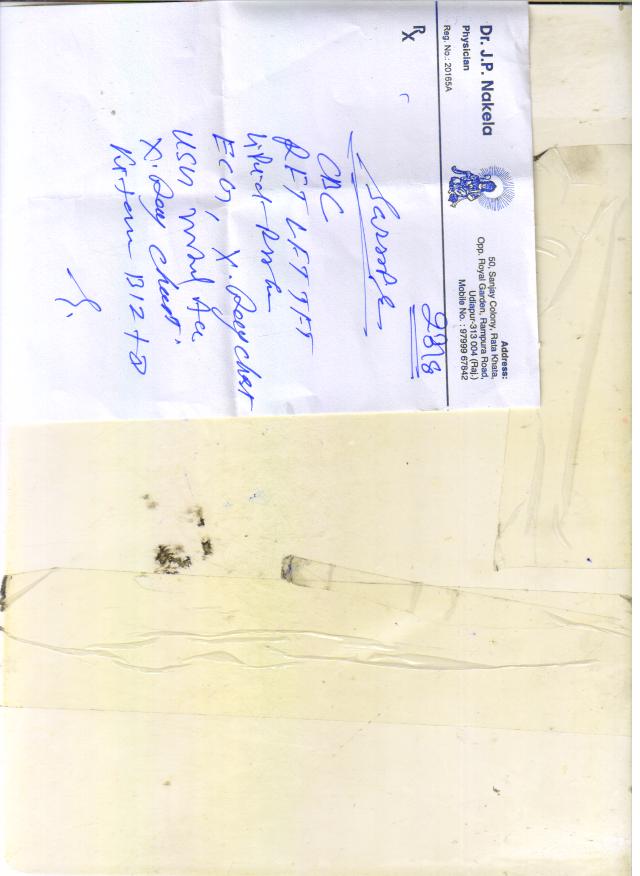 Dr. J.P. Nakela
Physician
Reg. No.: 20165A
Address:
50, Sanjay Colony, Rata Khata,
Opp. Royal Garden, Rampura Road,
Udaipur-313 004 (Raj.)
Mobile No. : 97999 67842
Rx
CBC
RFT LFT TFT
ECG, X. Ray chest
USG
X. Ray chest.
B12 + D